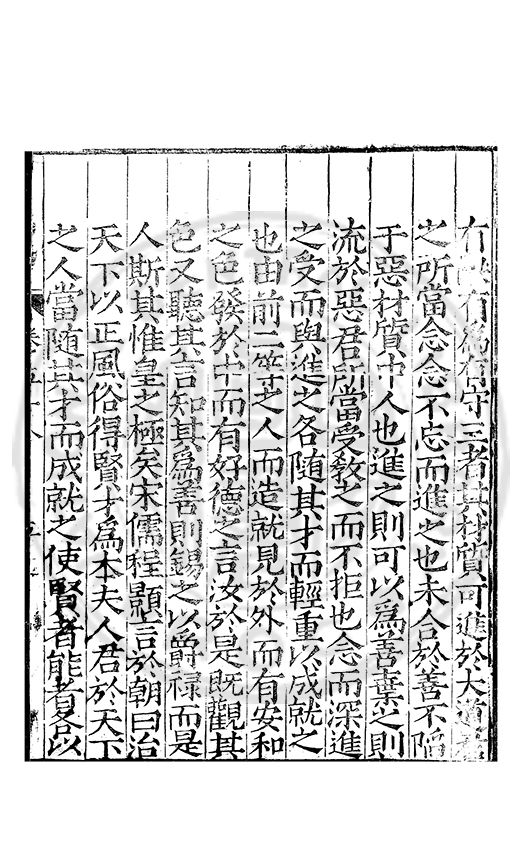 有猷有爲有守三者其材質可進於大道君
之所當念念不忘而進之也未合於善不陷
于惡材質中人也進之則可以爲善棄之則
流於惡君所當受教之而不拒也念而深進
之受而與進之各随其才而輕重以成就之
也由前二等之人而造就見於外而有安和
之色發於中而有好德之言汝於是既觀其
色又聽其言知其爲善則錫之以爵禄而是
人斯其惟皇之極矣宋儒程顥言於朝曰治
天下以正風俗得賢才爲本夫人君於天下
之人當随其才而成就之使賢者能者各以